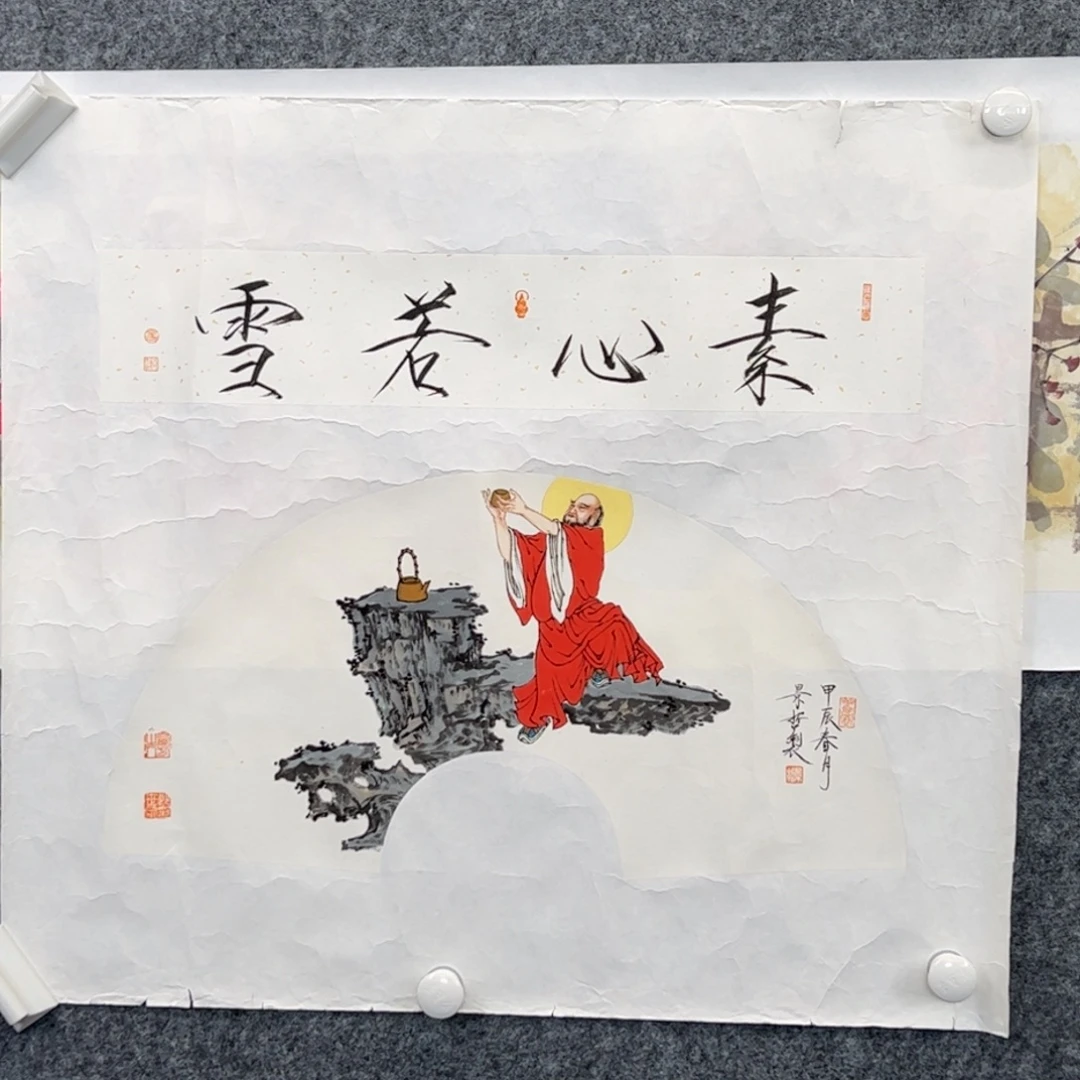 素心若雪
甲辰春月
景哲製